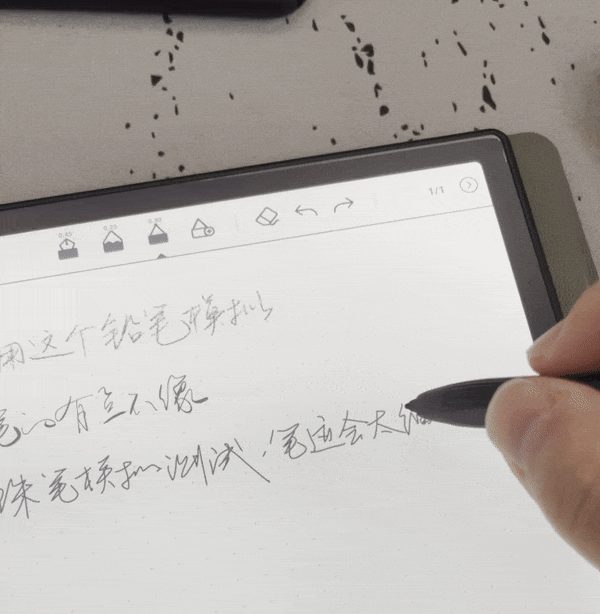 1/1
用这个铅笔模拟
笔的有点不像
珠笔模拟测试，笔迹会太